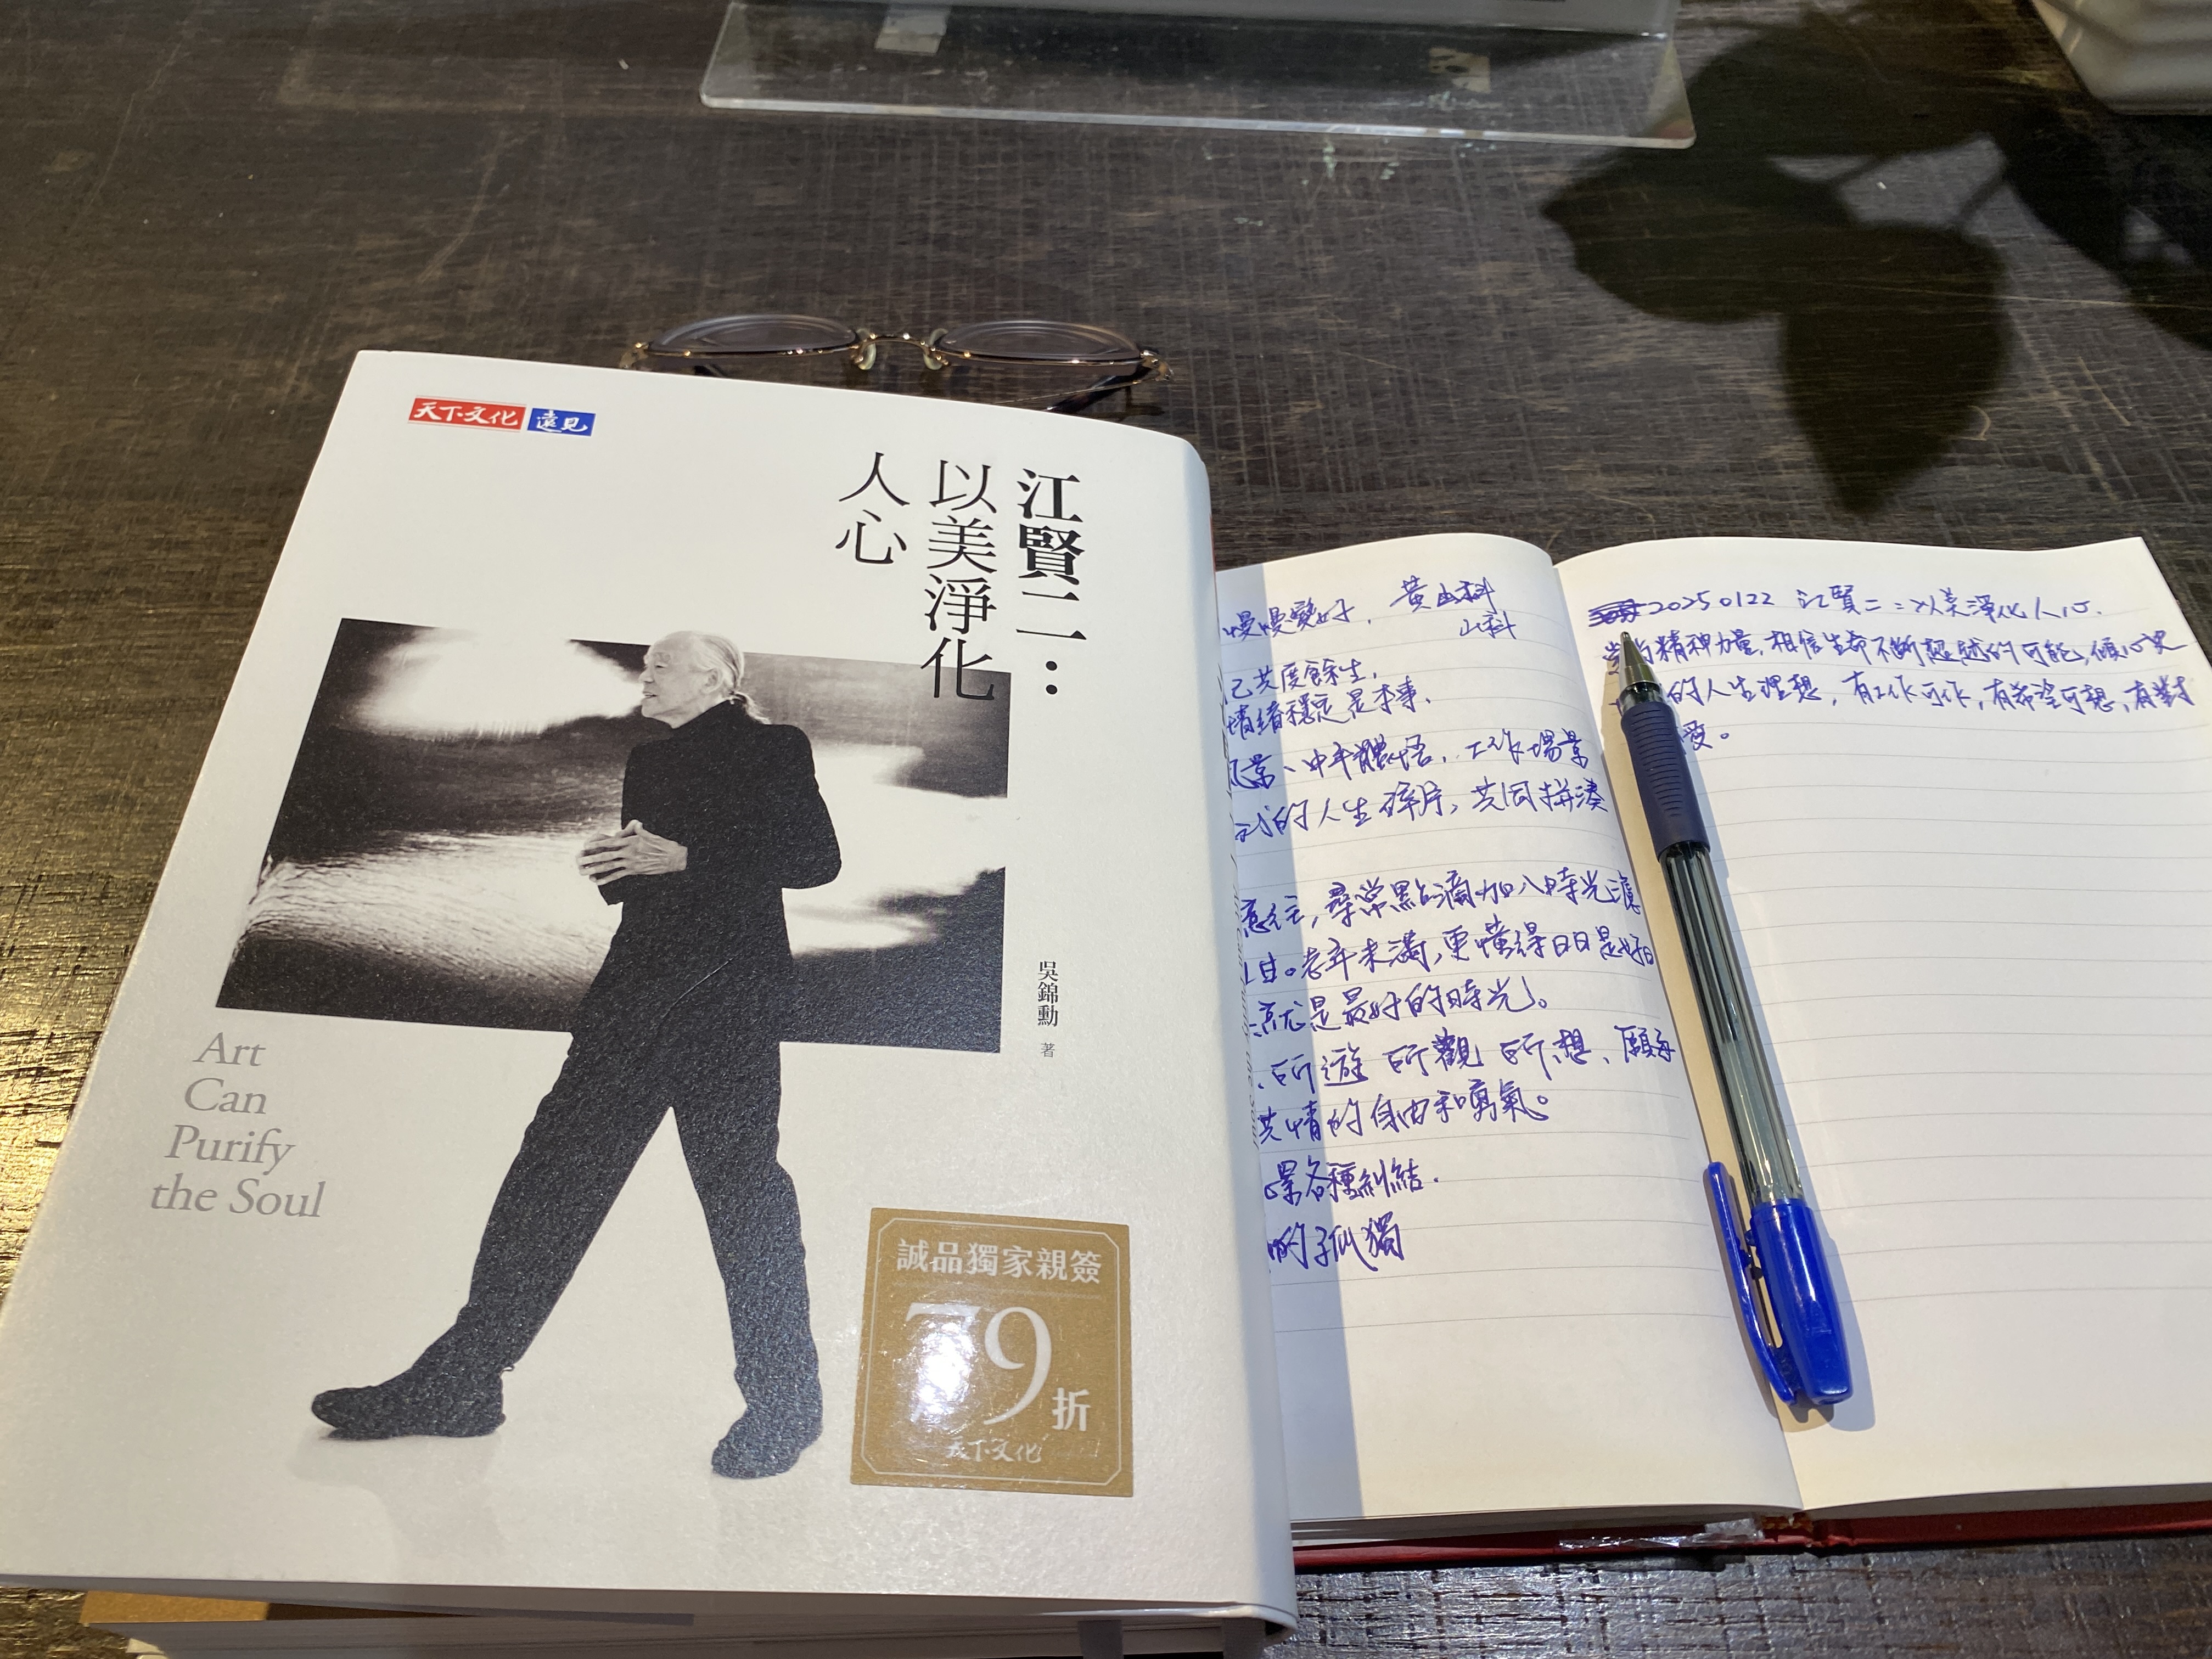 天下文化 遠見
江賢二：
以美淨化
人心
吳錦勳 著
Art
Can
Purify
the Soul
誠品獨家親簽
79折
天下文化
慢慢變好，黃山料
山料
己共度餘生，
情緒穩定是本事．
景、中年體悟，工作場景
的人生碎片，共同拼湊
意往，尋常點滴加入時光濾
由。老年未滿，更懂得日日是好日
就是最好的時光」。
所遊 所觀 所想、願每
共情的自由和勇氣。
景各種糾結．
的孤獨
20250122 江賢二：以美淨化人心．
精神力量，相信生命不斷超越的可能，傾心
的人生理想，有工作可作，有希望可想，有對
愛。